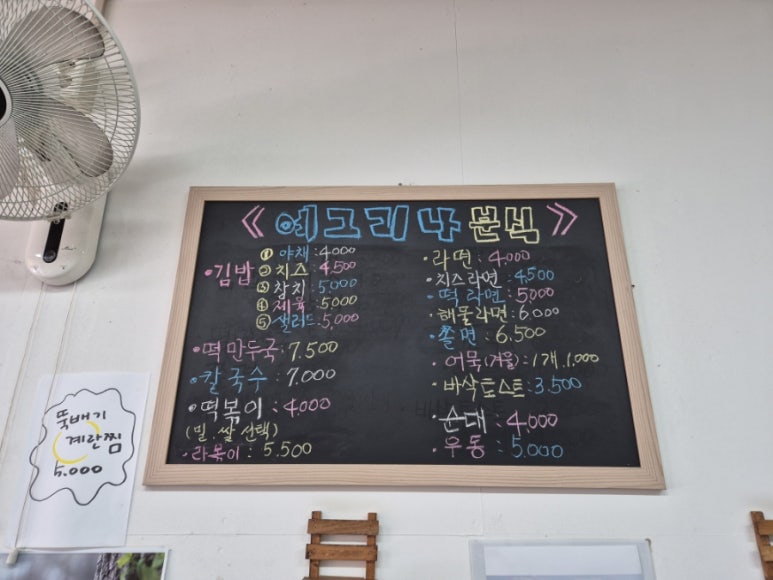 《 에그리나 분식 》
•김밥
① 야채 : 4,000
② 치즈 : 4,500
③ 참치 : 5,000
④ 제육 : 5,000
⑤ 샐러드 : 5,000
•떡만두국 : 7.500
•칼국수 : 7,000
•떡볶이 : 4,000
(밀, 쌀 선택)
•라볶이 : 5.500
•라면 : 4,000
•치즈라면 : 4,500
•떡라면 : 5,000
•해물라면 : 6,000
•쫄면 : 6.500
•어묵(겨울) : 1개.1,000
•바삭토스트 : 3.500
•순대 : 4,000
•우동 : 5,000
뚝배기
계란찜
5.000